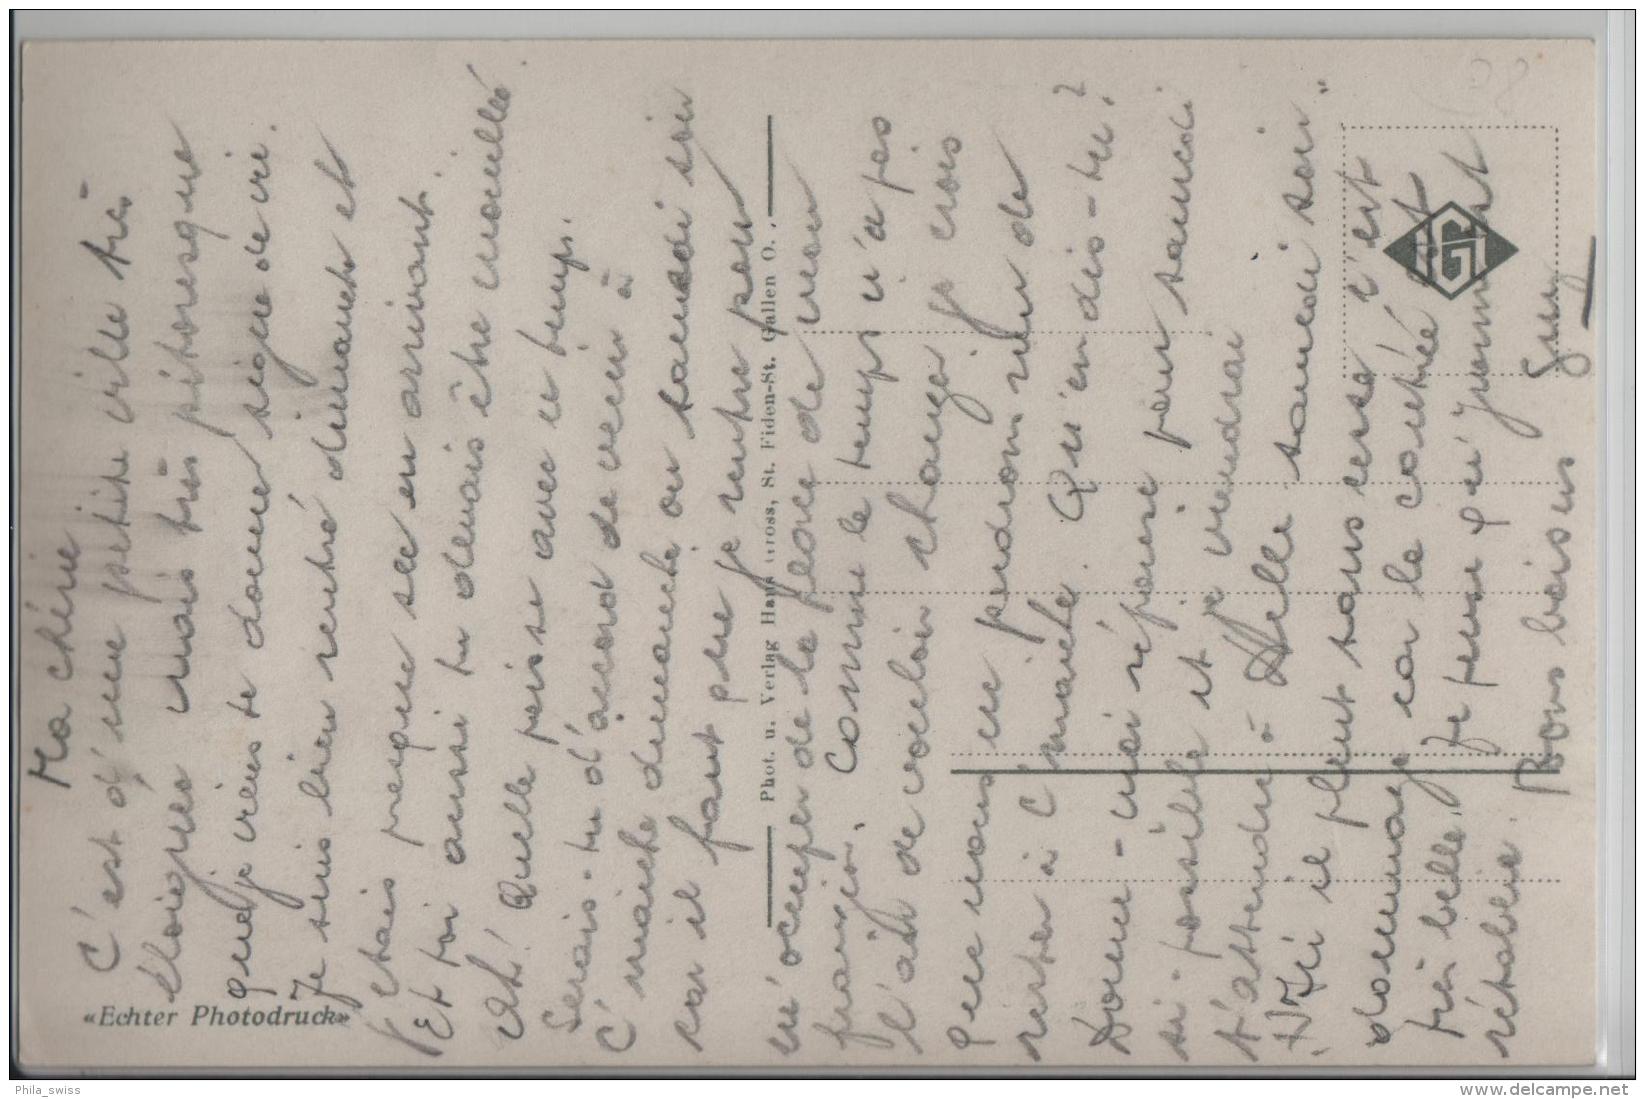 Ma chérie
C'est d'une petite ville très
éloignée mais très pitoresque
que je viens te donner signe de vie.
Je suis bien rentré dimanche et
j'étais presque sec en arrivant.
Et toi aussi tu devais être mouillée.
Ah! Quelle poisse avec ce temps.
Serais-tu d'accord de venir à
C' manche dimanche ou samedi soir
car il faut que je rentre pour
m'occuper de la place de mon
frangin. Comme le temps n'a pas
l'air de vouloir changer je crois
que nous ne perdrons rien de
rester à C' manche. Qu'en dis-tu?
Donne-moi réponse pour samedi
si possible et je viendrai
t'attendre à Delle samedi soir"
Ici il pleut sans cesse c'est
dommage car la contrée est
très belle. Je pense qu'
rétablie. Bons baisers Guy
«Echter Photodruck»
Phot. u. Verlag Hans Gross, St. Fiden-St. Gallen O.
HG
Phila_swiss
www.delcampe.net